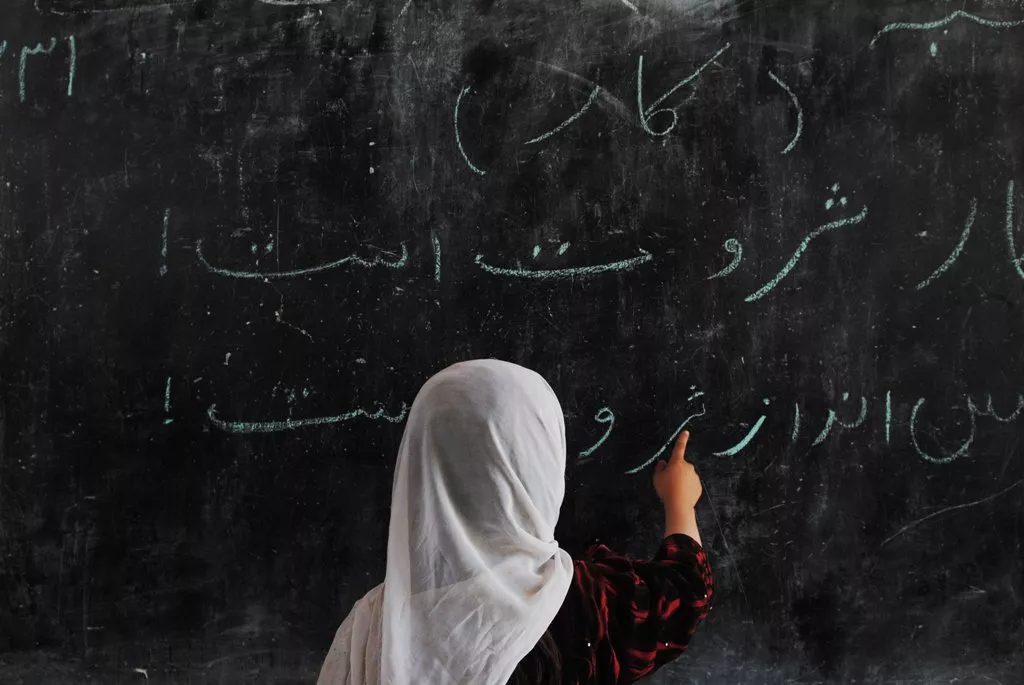 ۳۱
( کار )
کار ثروت است !
س انداز ثرو ست !